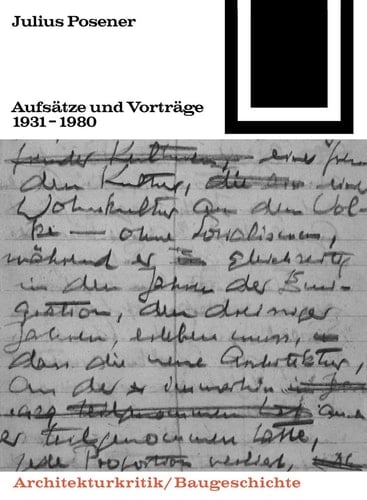 Julius Posener
Aufsätze und Vorträge
1931–1980
einer
den Kultur, die eine
Wohnkultur an dem Vol-
ke — ohne Sozialismus,
während er gleichzeitig
in den Jahren der Emi-
gration, den dreissiger
Jahren, erleben muss,
dass die neue Architektur,
an der er immerhin
auch
er teilgenommen hatte,
jede Proportion verliert,
Architekturkritik/Baugeschichte